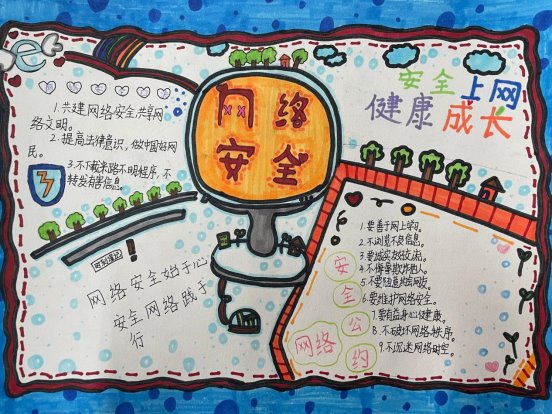 e
网络
安全
安全上网
健康成长
1.共建网络安全共享网
络文明。
2.提高法律意识，做中国好网
民。
3.不下载来路不明程序，不
转发有害信息。
网络安全始于心
安全网络践于
行
1.要善于网上学习。
2.不浏览不良信息。
3.要诚实友好交流。
4.不侮辱欺诈他人。
6.要维护网络安全。
7.要有益身心健康。
8.不破坏网络秩序。
9.不沉迷网络时空。
网络
安全公约